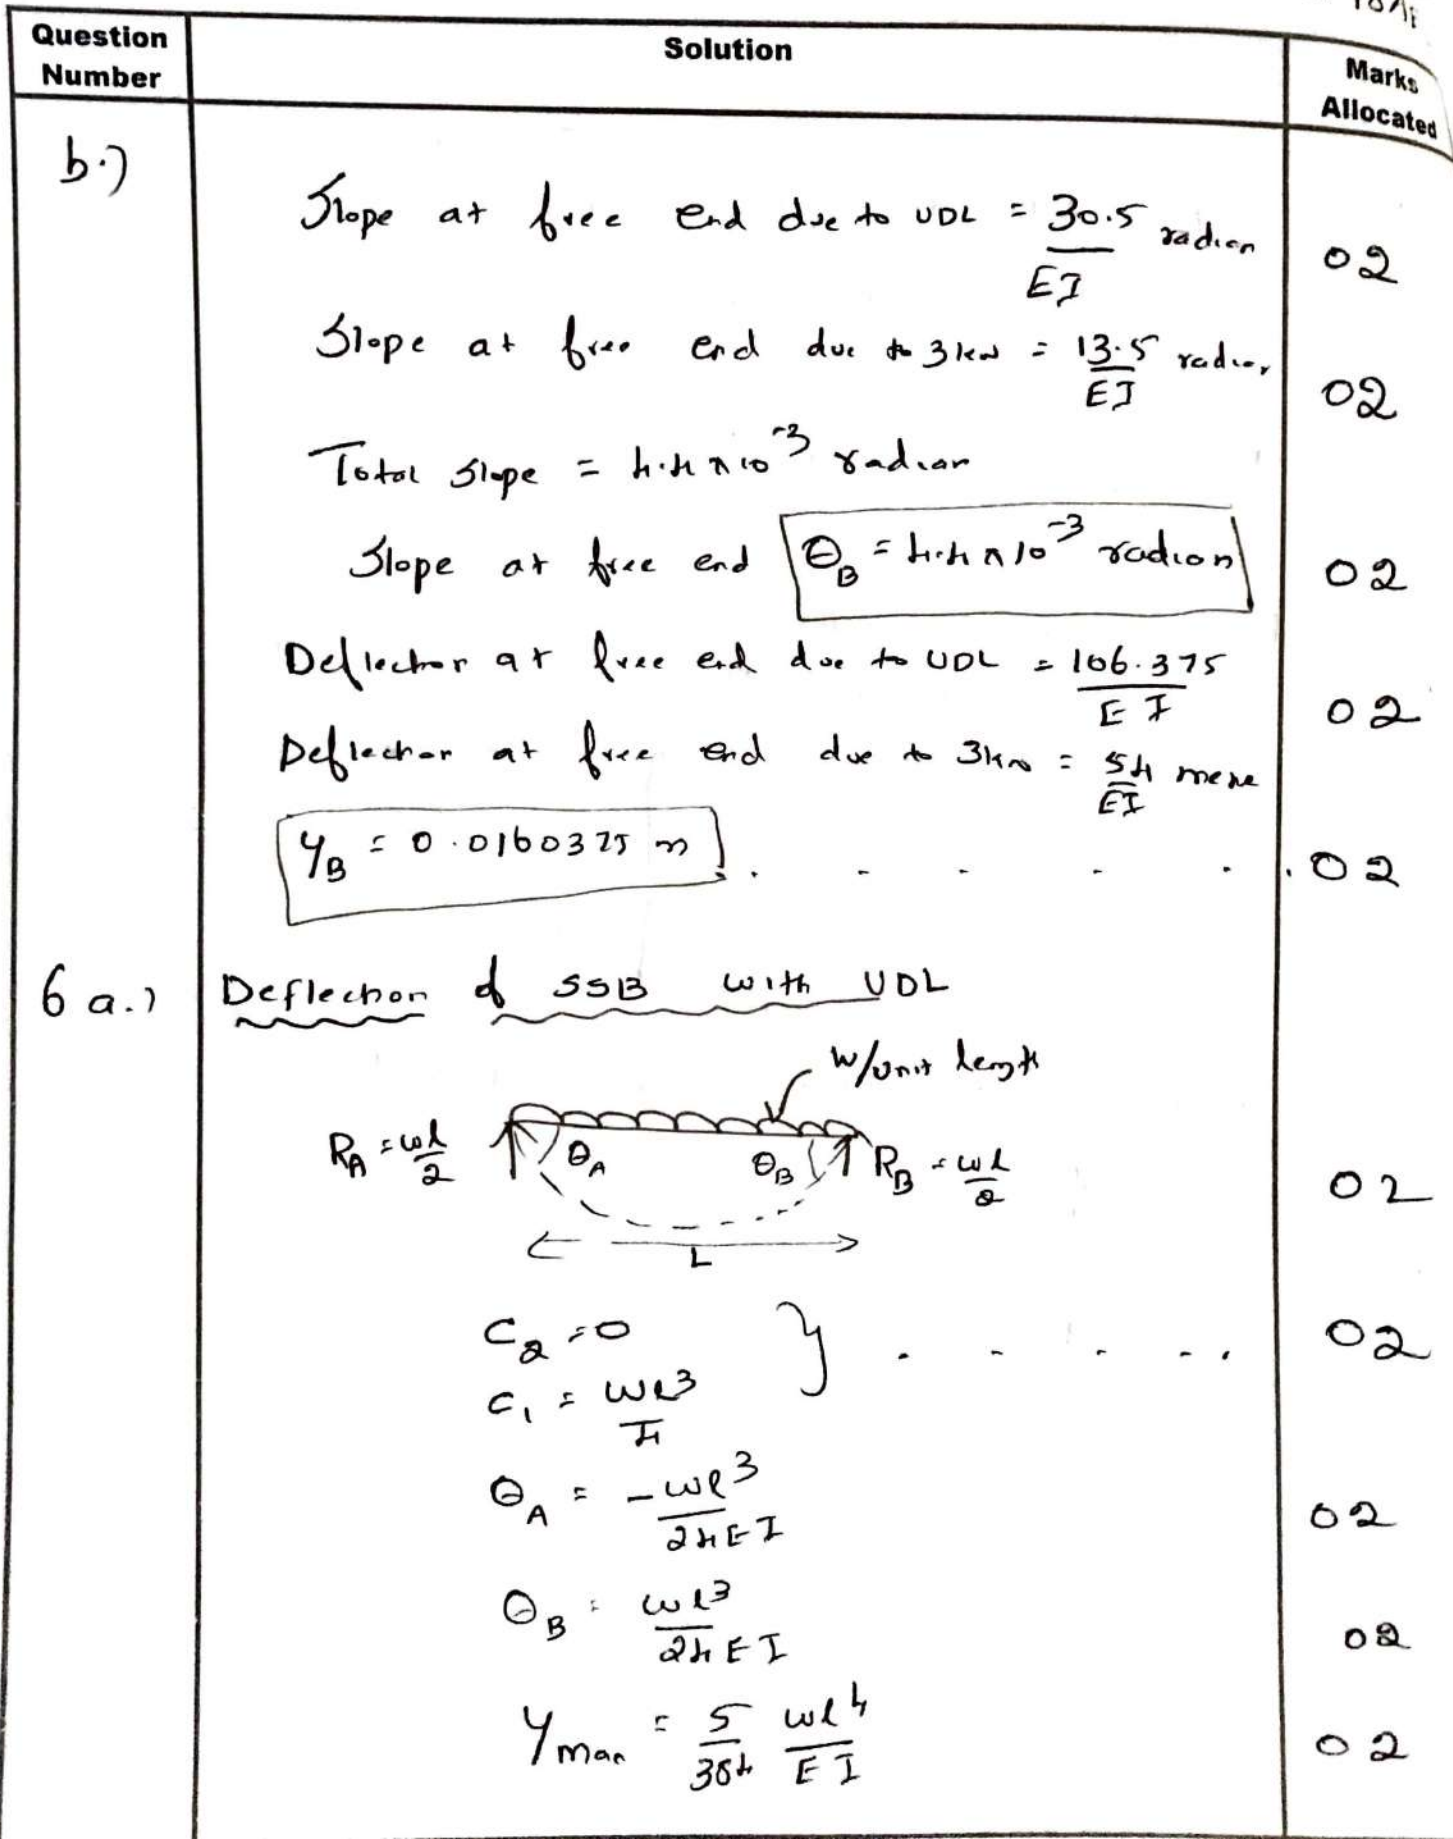 Question Number
Solution
Marks Allocated
b.)
Slope at free end due to UDL = 30.5/EI radian
02
Slope at free end due to 3 kN = 13.5/EI radian
02
Total slope = 4.4 × 10^-3 radian
Slope at free end θ_B = 4.4 × 10^-3 radian
02
Deflection at free end due to UDL = 106.375/EI
02
Deflection at free end due to 3kN = 54/EI
y_B = 0.0160375 m . . . . . .
02
6 a.)
Deflection of SSB with UDL
w/unit length
R_A = wl/2
θ_A
θ_B
R_B = wl/2
02
L
C_2 = 0
} . . . . .
02
C_1 = wl^3/4
θ_A = -wl^3/24EI
02
θ_B = wl^3/24EI
02
y_max = 5/384 wl^4/EI
02